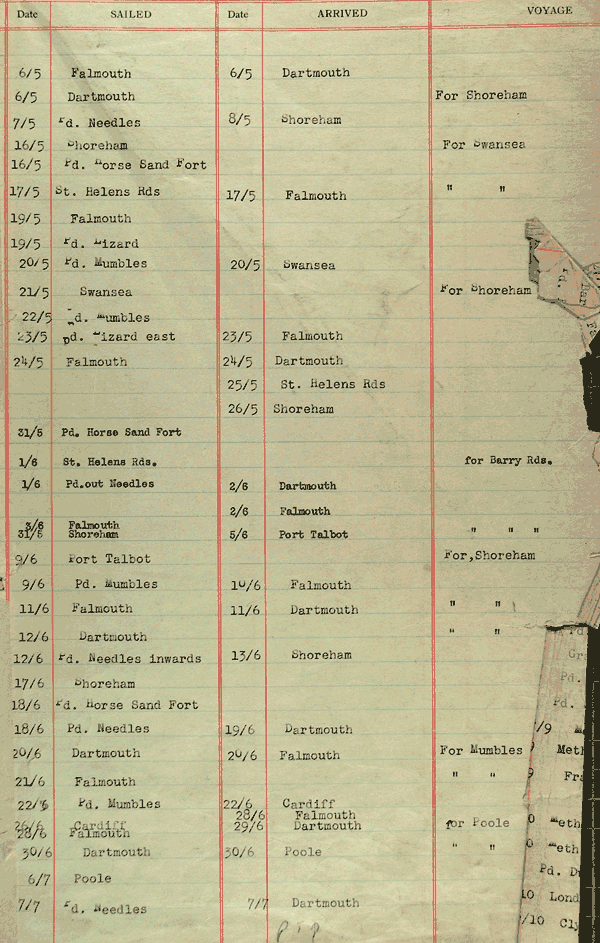 Date SAILED Date ARRIVED VOYAGE
6/5 Falmouth 6/5 Dartmouth
6/5 Dartmouth For Shoreham
7/5 Pd. Needles 8/5 Shoreham
16/5 Shoreham For Swansea
16/5 Pd. Horse Sand Fort
17/5 St. Helens Rds 17/5 Falmouth " "
19/5 Falmouth
19/5 Pd. Lizard
20/5 Pd. Mumbles 20/5 Swansea
21/5 Swansea For Shoreham
22/5 Pd. Mumbles
23/5 pd. Lizard east 23/5 Falmouth
24/5 Falmouth 24/5 Dartmouth
25/5 St. Helens Rds
26/5 Shoreham
31/5 Pd. Horse Sand Fort
1/6 St. Helens Rds. for Barry Rds.
1/6 Pd.out Needles 2/6 Dartmouth
2/6 Falmouth
3/6 Falmouth " " "
31/5 Shoreham 5/6 Port Talbot
9/6 Port Talbot For,Shoreham
9/6 Pd. Mumbles 10/6 Falmouth
11/6 Falmouth 11/6 Dartmouth " "
12/6 Dartmouth " "
12/6 Pd. Needles inwards 13/6 Shoreham
17/6 Shoreham
18/6 Pd. Horse Sand Fort
18/6 Pd. Needles 19/6 Dartmouth
20/6 Dartmouth 20/6 Falmouth For Mumbles
21/6 Falmouth " "
22/6 Pd. Mumbles 22/6 Cardiff
28/6 Falmouth
26/6 Cardiff 29/6 Dartmouth for Poole
28/6 Falmouth
30/6 Dartmouth 30/6 Poole " "
6/7 Poole
7/7 Pd. Needles 7/7 Dartmouth